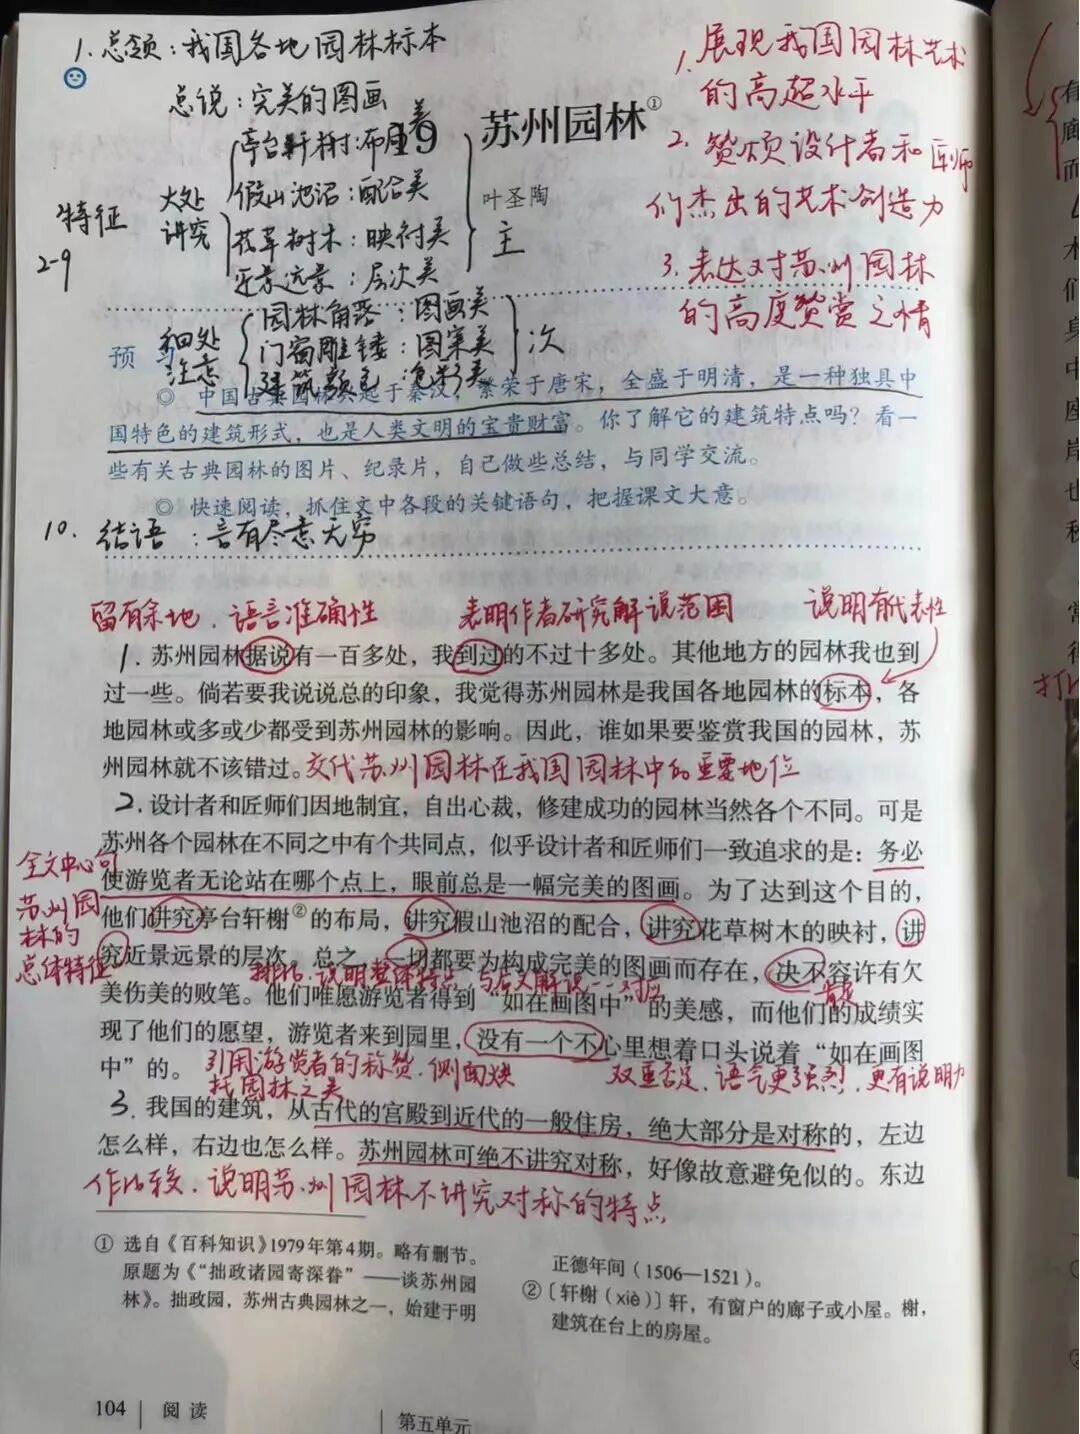 1. 总领：我国各地园林标本
总说：完美的图画
特征
2-9
大处
讲究
亭台轩榭：布局美
假山池沼：配合美
花草树木：映衬美
近景远景：层次美
主
细处
注意
园林角落：图画美
门窗雕镂：图案美
建筑颜色：色彩美
次
10. 结语：言有尽意无穷
1. 展现我国园林艺术
的高超水平
2. 赞颂设计者和匠师
们杰出的艺术创造力
3. 表达对苏州园林
的高度赞赏之情
19 苏州园林①
叶圣陶
预
◎ 中国古典园林兴起于秦汉，繁荣于唐宋，全盛于明清，是一种独具中
国特色的建筑形式，也是人类文明的宝贵财富。你了解它的建筑特点吗？看一
些有关古典园林的图片、纪录片，自己做些总结，与同学交流。
◎ 快速阅读，抓住文中各段的关键语句，把握课文大意。
留有余地、语言准确性
表明作者研究解说范围
说明有代表性
1. 苏州园林据说有一百多处，我到过的不过十多处。其他地方的园林我也到
过一些。倘若要我说说总的印象，我觉得苏州园林是我国各地园林的标本，各
地园林或多或少都受到苏州园林的影响。因此，谁如果要鉴赏我国的园林，苏
州园林就不该错过。交代苏州园林在我国园林中的重要地位
2. 设计者和匠师们因地制宜，自出心裁，修建成功的园林当然各个不同。可是
苏州各个园林在不同之中有个共同点，似乎设计者和匠师们一致追求的是：务必
使游览者无论站在哪个点上，眼前总是一幅完美的图画。为了达到这个目的，
他们讲究亭台轩榭②的布局，讲究假山池沼的配合，讲究花草树木的映衬，讲
究近景远景的层次。总之，一切都要为构成完美的图画而存在，决不容许有欠
美伤美的败笔。他们唯愿游览者得到“如在画图中”的美感，而他们的成绩实
现了他们的愿望，游览者来到园里，没有一个不心里想着口头说着“如在画图
中”的。
全文中心句
苏州园
林的
总体特征
排比、说明整体特点，与后文解说一一对应
引用游览者的称赞，侧面
找园林之美
双重否定、语气更强烈，更有说明力
3. 我国的建筑，从古代的宫殿到近代的一般住房，绝大部分是对称的，左边
怎么样，右边也怎么样。苏州园林可绝不讲究对称，好像故意避免似的。东边
作比较、说明苏州园林不讲究对称的特点
① 选自《百科知识》1979年第4期。略有删节。
原题为《“拙政诸园寄深眷”——谈苏州园
林》。拙政园，苏州古典园林之一，始建于明
正德年间（1506—1521）。
②〔轩榭（xiè）〕轩，有窗户的廊子或小屋。榭，
建筑在台上的房屋。
104 阅读
第五单元